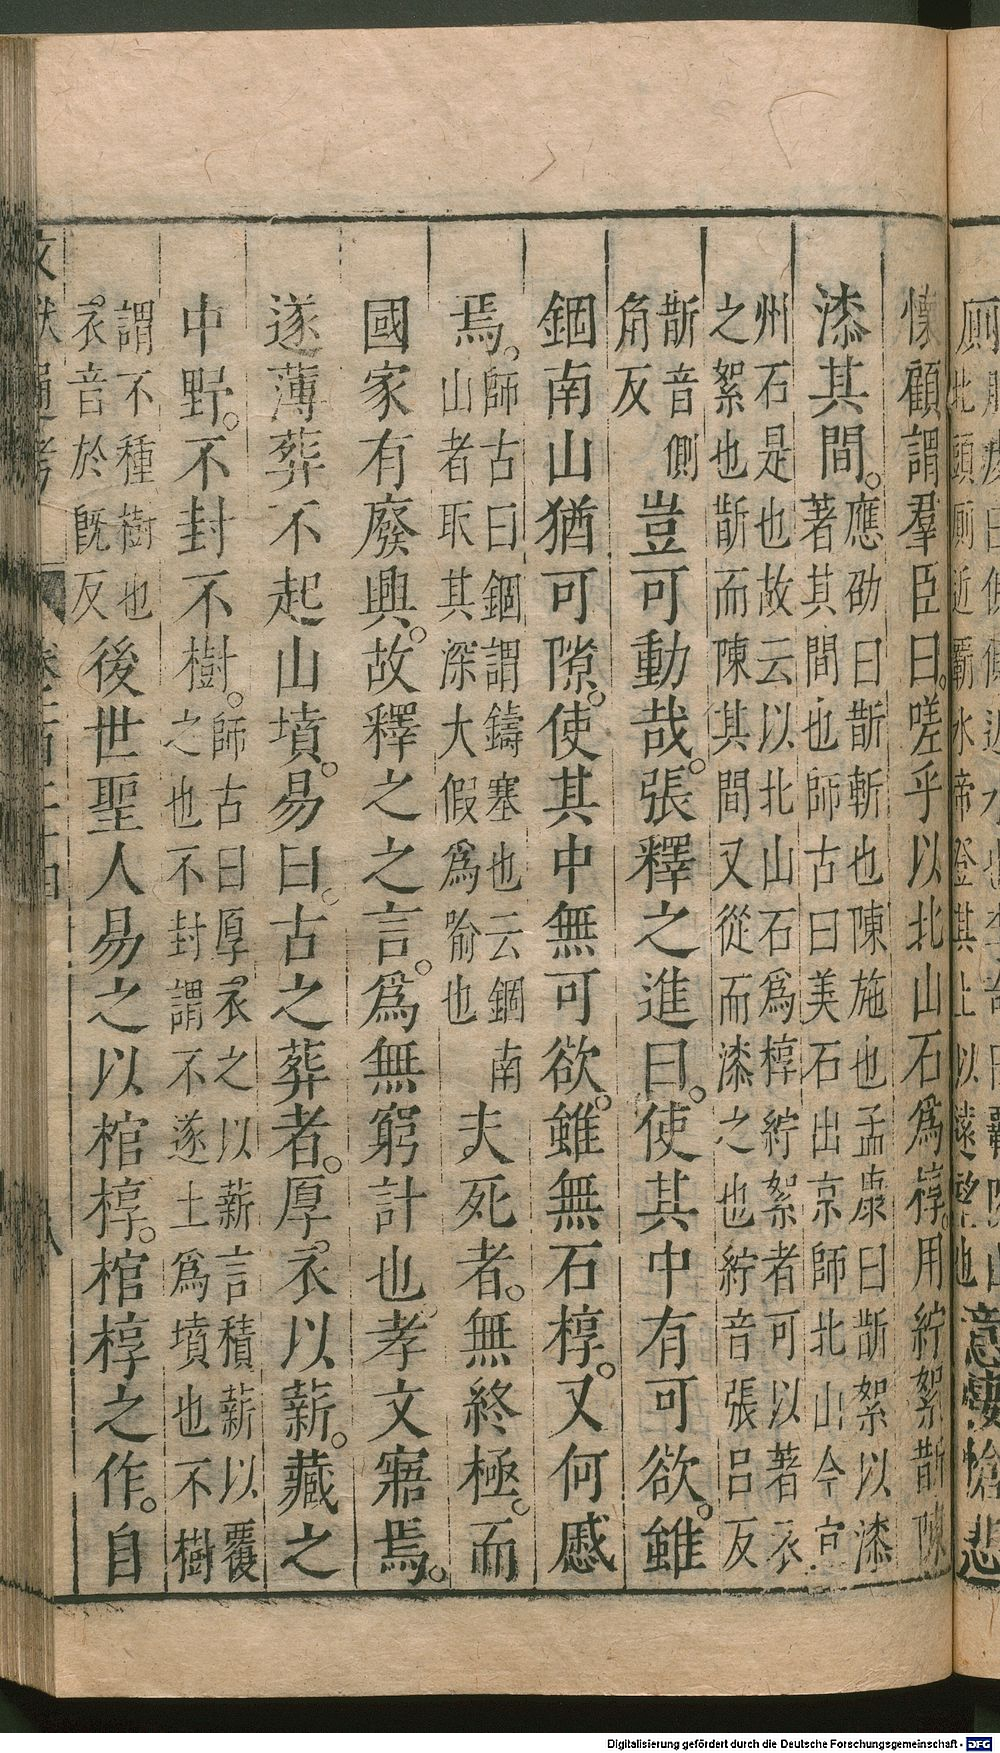 懷顧謂羣臣曰嗟乎以北山石爲椁用紵絮斮陳
漆其間應劭曰斮斬也陳施也孟康曰斮絮以漆
著其間也師古曰美石出京師北山今宜
州石是也故云以北山石爲椁紵絮者可以著衣
之絮也斮而陳其間又從而漆之也紵音張吕反
斮音側
角反豈可動哉張釋之進曰使其中有可欲雖
錮南山猶可隙使其中無可欲雖無石椁又何慼
焉師古曰錮謂鑄塞也云錮南
山者取其深大假爲喻也夫死者無終極而
國家有廢興故釋之之言爲無窮計也孝文寤焉
遂薄葬不起山墳易曰古之葬者厚衣以薪藏之
中野不封不樹師古曰厚衣之以薪言積薪以覆
之也不封謂不遂土爲墳也不樹
謂不種樹也
衣音於旣反後世聖人易之以棺椁棺椁之作自
Digitalisierung gefördert durch die Deutsche Forschungsgemeinschaft - DFG